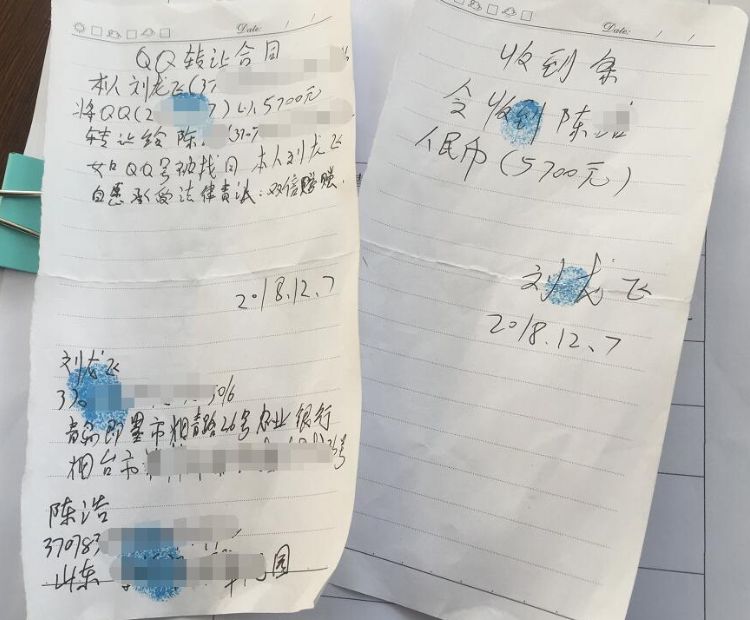 Date: / /
QQ转让合同
本人刘龙飞(37
将QQ(2 7)以5700元
转让给陈 (370
如QQ号被找回 本人刘龙飞
自愿承受法律责 双倍赔
2018.12.7
刘龙飞
370 306
青岛即墨市 青路26号农业银行
烟台市 号
陈浩
370783
山东 园
Date: / /
收到条
今收到陈浩
人民币(5700元)
刘龙飞
2018.12.7